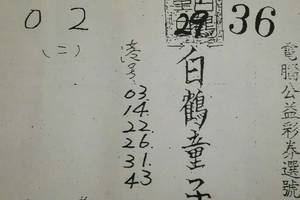 電腦公益彩券選號
36
29
白鶴童子
壹號.
03
14.
22.
26
31.
43
0 2
(二)